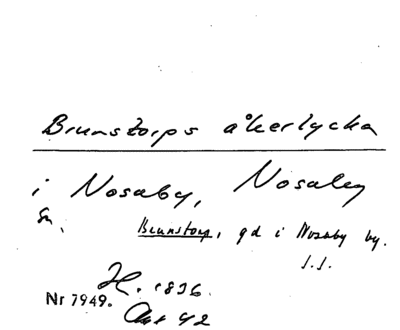 Brunstorps åkerlycka
i Nosaby, Nosaby
sn.
Brunstorp, gd i Nosaby by.
J.J.
H. 1836.
Nr 7949.
Akt 42